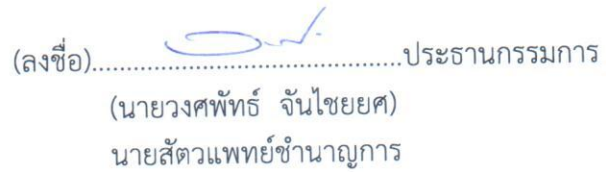 (ลงชื่อ)..........................................ประธานกรรมการ
(นายวงศพัทธ์ จันไชยยศ)
นายสัตวแพทย์ชำนาญการ